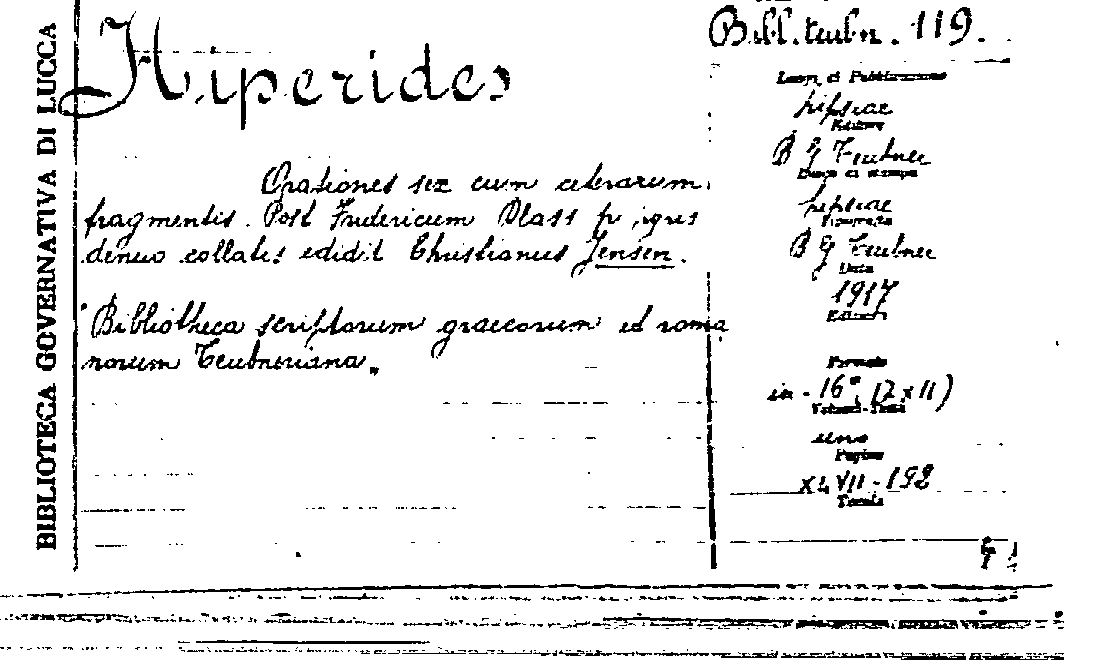 BIBLIOTECA GOVERNATIVA DI LUCCA
Hiperides
Orationes sex cum ceterarum
fragmentis. Post Fridericum Blass
denuo collatis edidit Christianus Jensen.
"Bibliotheca scriptorum graecorum et roma
norum Teubneriana„
Bibl. teubn. 119.
Luogo di Pubblicazione
Lipsiae
Editore
B G Teubner
Luogo di stampa
Lipsiae
Tipografia
B G Teubner
Data
1917
Edizione
Formato
in - 16°, (17 x 11)
Volumi-Tomi
uno
Pagine
XLVII - 192
Tavole